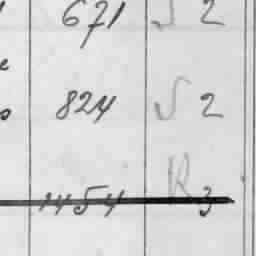 671 √ 2
824 √ 2
1454 R 3